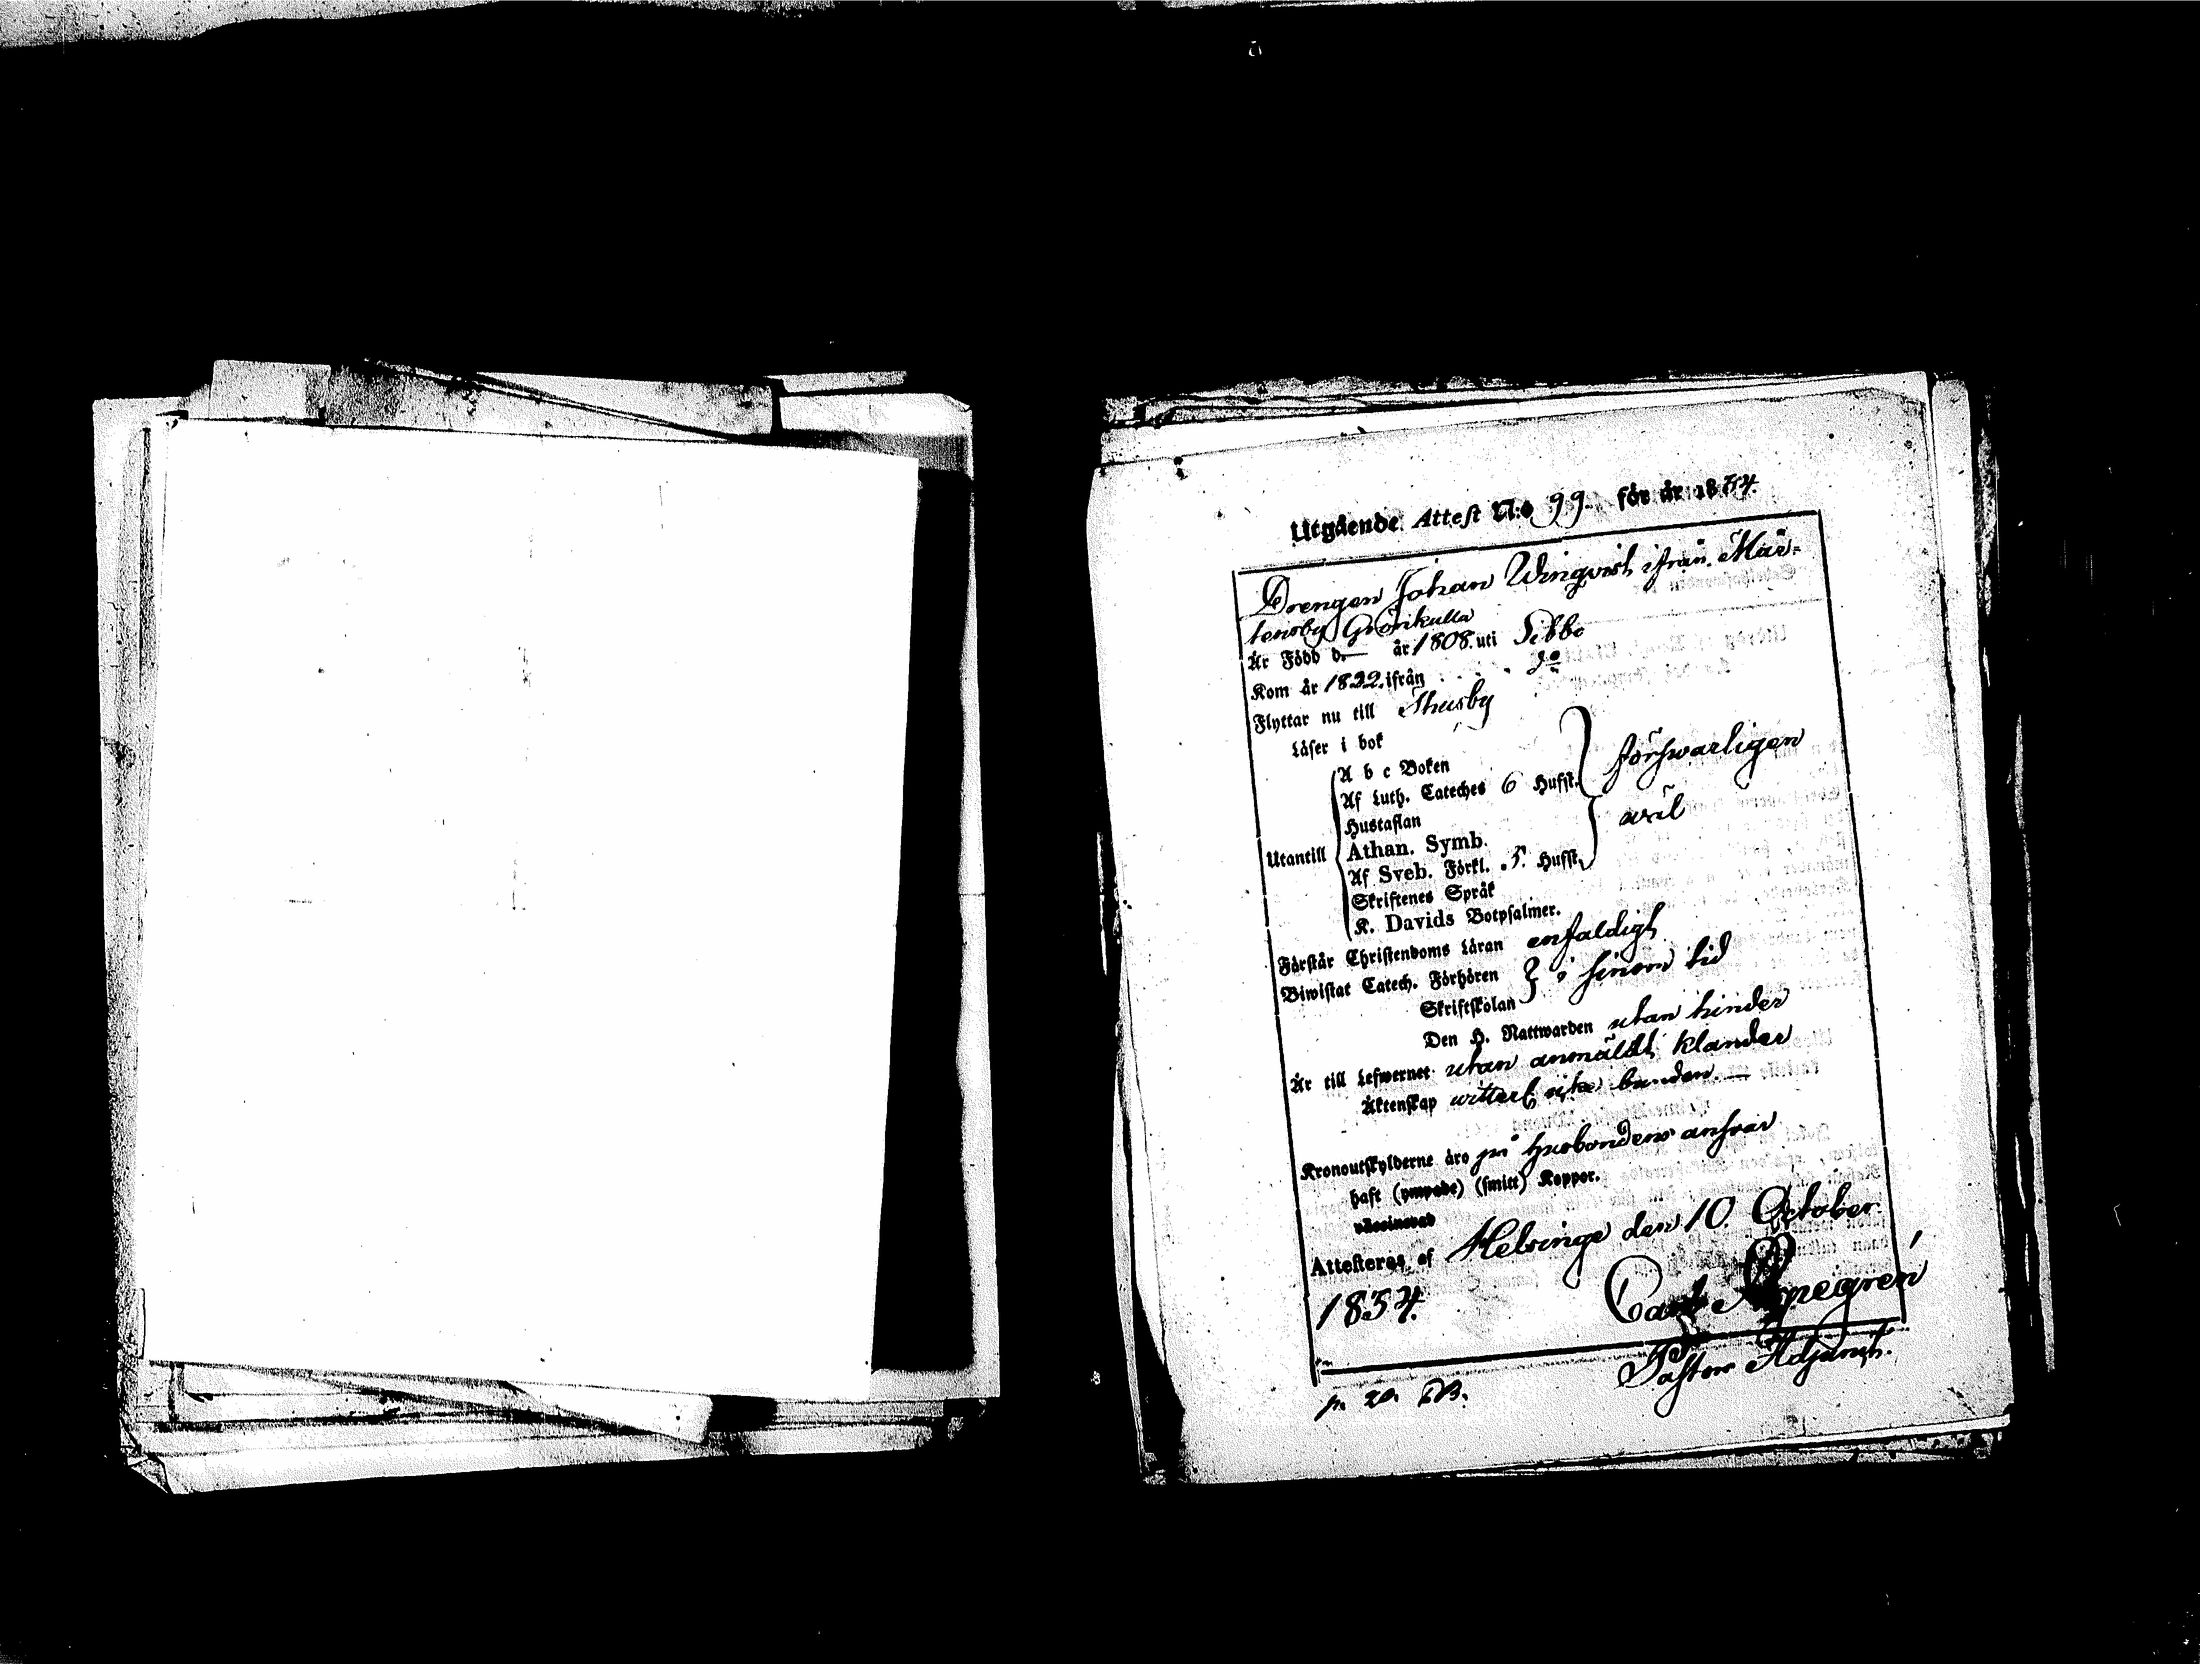 Utgående Attest N:o 99. för år 1834.
Drengen Johan Winqvist ifrån Mår-
tensby Grönkulla
Är Född d. — år 1808. uti Sibbo
Kom år 1832. ifrån . . . . do
Flyttar nu till Thusby
Läser i bok
A b c Boken
Af Luth. Cateches 6 Hufst. försvarligen
Hustaflan
Utantill Athan. Symb. wäl
Af Sveb. Förkl. 5. Hufst.
Skriftenes Språk
K. Davids Botpsalmer.
Förstår Christendoms Läran enfaldigt
Biwistat Catech. Förhören i sinom tid
Skriftskolan
Den H. Nattwarden utan hinder
Är till Lefwernet utan anmäldt klander
Äktenskap witterl. icke bunden. —
Kronoutskylderne äro på husbondens ansvar
haft (ympade) (smitt) Koppor.
vaccinerad
Attesteras af Helsinge den 10. October
1834. Carl
Pastors Adjunct.
p. 20.